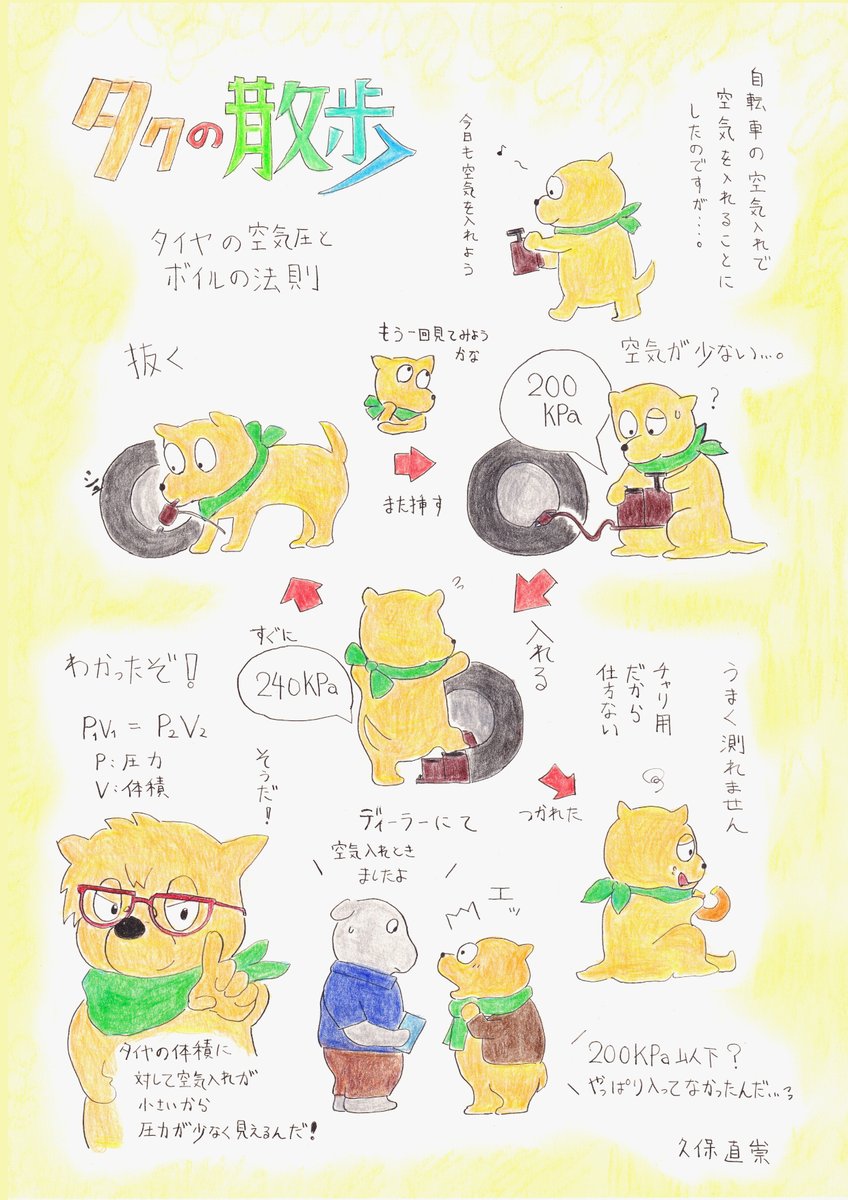 タクの散歩
タイヤの空気圧と
ボイルの法則
自転車の空気入れで
空気を入れることに
したのですが…。
今日も空気を入れよう
空気が少ない…。
200
KPa
?
もう一回見てみよう
かな
また挿す
抜く
シュ
入れる
すぐに
240KPa
つかれた
うまく測れません
チャリ用
だから
仕方ない
わかったぞ!
P₁V₁ = P₂V₂
P:圧力
V:体積
そうだ!
タイヤの体積に
対して空気入れが
小さいから
圧力が少なく見えるんだ!
ディーラーにて
空気入れとき
ましたよ
エッ
200KPa以下?
やっぱり入ってなかったんだ…っ
久保直崇